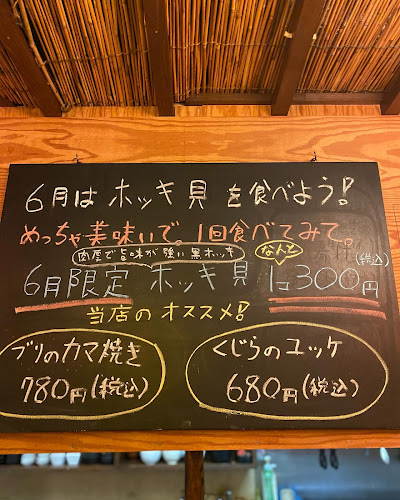 6月はホッキ貝を食べよう!
めっちゃ美味いで。1回食べてみて。
肉厚で旨味が強い黒ホッキ
なんと
6月限定 ホッキ貝 1コ300円(税込)
当店のオススメ!
ブリのカマ焼き
780円(税込)
くじらのユッケ
680円(税込)